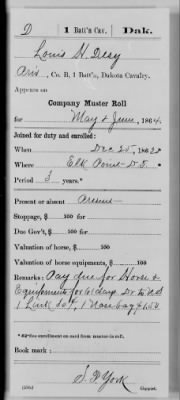 D | 1 Batt'n Cav. | Dak.
Louis H. Desy
, Co. B, 1 Batt'n, Dakota Cavalry.
Appears on
Company Muster Roll
for May & June, 1864.
Joined for duty and enrolled:
When Dec 25, 186
Where Elk Point D.T.
Period 3 years.*
Present or absent
Stoppage, $ 100 for
Due Gov't, $ 100 for
Valuation of horse, $ 100
Valuation of horse equipments, $ 100
Remarks: Pay due for Horse &
Equipments for 61 days. Dr to U.S
1 Link 20¢, 1 Nose bag $1.50
*See enrollment on card from muster-in roll.
Book mark:
S. P. York
(358) Copyist.